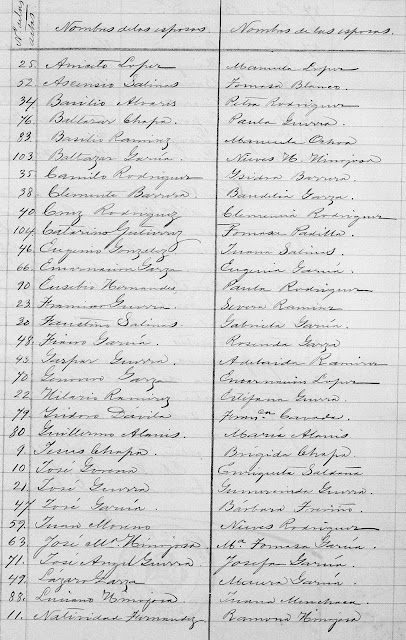 Nº de las actas Nombres de los esposos. Nombres de las esposas.
25. Aniceto Lopez Manuela Lopez
52. Ascencio Salinas Tomasa Blanco.
34. Basilio Alvaris Petra Rodriguez
76. Baltazar Chapa. Paula Guerra.
83. Basilio Ramirez Manuela Ochoa
103. Baltazar Garcia. Nieves H. Hinojosa
35. Camilo Rodriguez Ysidra Barrera
38. Clemente Barrera Baudelia Garza.
40. Cruz Rodriguez Clemencia Rodriguez
104. Catarino Gutierrez Tomasa Padilla.
46. Eugenio Gonzalez Juana Salinas.
66. Encarnacion Garza Eugenia Garcia.
90. Eusebio Hernandez Paula Rodriguez
23. Guerra Severa Ramirez
30. Faustino Salinas Gabriela Garcia.
48. Garcia. Rosenda Garza
43. Gaspar Guerra. Adelaida Ramirez
70. Genovevo Garza Encarnacion Lopez
22. Hilario Ramirez Estefana Guerra
79. Ysidoro Davila Franca. Canada.
80. Guillermo Alanis. Maria Alanis
9. Jesus Chapa. Brigida Chapa.
10. José Enriqueta Saldaña
21. José Guerra Gumercinda Guerra.
47. José Garcia Barbara Treviño
59. Juan Moreno Nieves Rodriguez
63. José Mª Hinojosa Mª Tomasa Garcia.
71. José Angel Guerra. Josefa Garcia
49. Lazaro Garza Garcia.
88. Luciano Hinojosa Juana Menchaca.
11. Natividad Fernandez Ramona Hinojosa